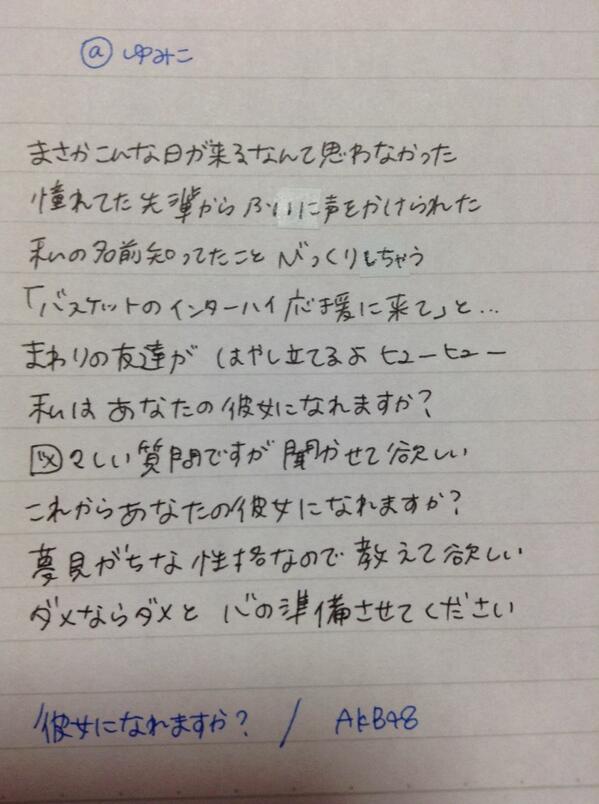 ⓐ ゆみこ
まさかこんな日が来るなんて思わなかった
憧れてた先輩からふいに声をかけられた
私の名前知ってたこと びっくりしちゃう
「バスケットのインターハイ応援に来て」と…
まわりの友達が はやし立てるよ ヒューヒュー
私は あなたの彼女になれますか?
図々しい質問ですが聞かせて欲しい
これからあなたの彼女になれますか?
夢見がちな性格なので教えて欲しい
ダメならダメと 心の準備させてください
彼女になれますか? / AKB48